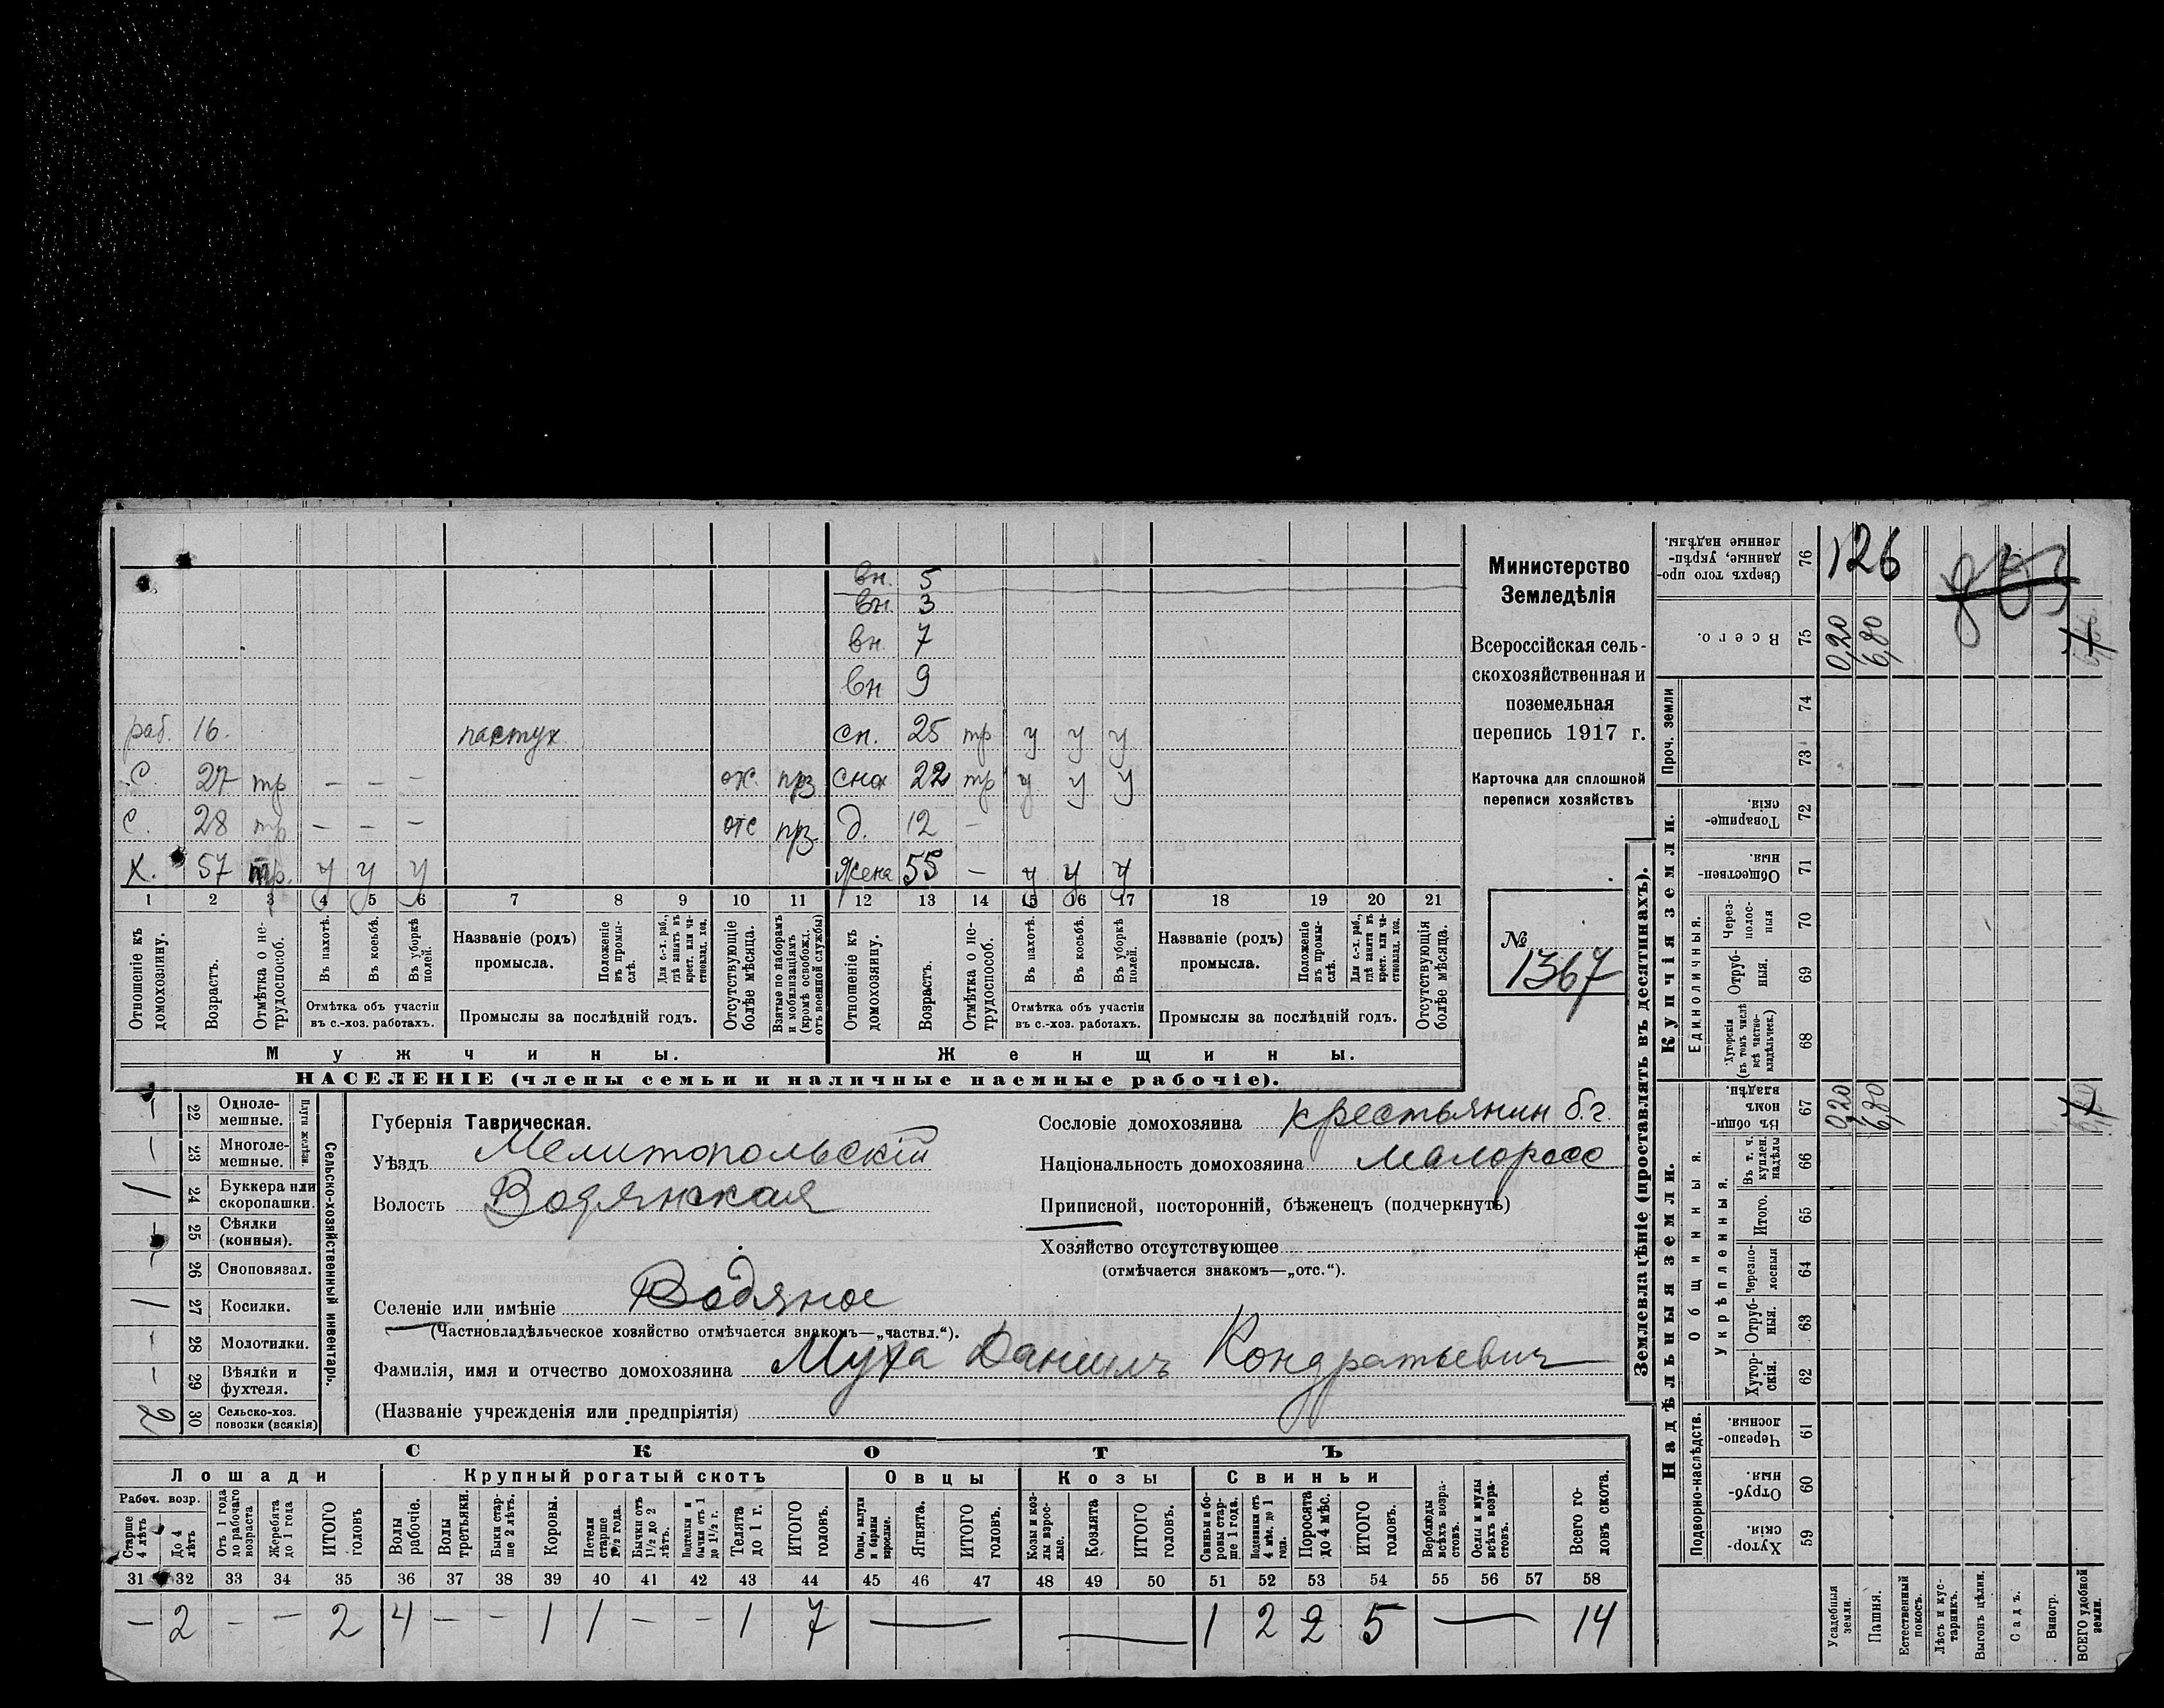 вн. 5
вн. 3
вн. 7
вн 9
раб. 16. пастух сн. 25 тр у у у
С. 27 тр — — — прз сна 22 тр у у у
С. 28 тр — — — отс прз. д. 12 —
Х. 57 тр. у у у жена 55 — у у у
1 2 3 4 5 6 7 8 9 10 11 12 13 14 15 16 17 18 19 20 21
Отношеніе къ домохозяину.
Возрастъ.
Отмѣтка о не-трудоспособ.
Въ пахотѣ.
Въ косьбѣ.
Въ уборкѣ полей.
Отмѣтка объ участіи въ с.-хоз. работахъ.
Названіе (родъ) промысла.
Положеніе въ промы-слѣ.
Для с.-х. раб., гдѣ занятъ въ крест. или ча-стновлад. хоз.
Промыслы за послѣдній годъ.
Отсутствующіе болѣе мѣсяца.
Взятые по наборамъ и мобилизаціямъ (кромѣ освобожд. отъ военной службы)
Отношеніе къ домохозяину.
Возрастъ.
Отмѣтка о не-трудоспособ.
Въ пахотѣ.
Въ косьбѣ.
Въ уборкѣ полей.
Отмѣтка объ участіи въ с.-хоз. работахъ.
Названіе (родъ) промысла.
Положеніе въ промы-слѣ.
Для с.-х. раб., гдѣ занята въ крест. или ча-стновлад. хоз.
Промыслы за послѣдній годъ.
Отсутствующія болѣе мѣсяца.
Мужчины. Женщины.
НАСЕЛЕНІЕ (члены семьи и наличные наемные рабочіе).
Министерство
Земледѣлія
Всероссійская сель-
скохозяйственная и
поземельная
перепись 1917 г.
Карточка для сплошной
переписи хозяйствъ
№
1367
Сельско-хозяйственный инвентарь.
Плуги желѣзн.
— 22 Одноле-мешные.
— 23 Многоле-мешные.
1 24 Буккера или скоропашки.
— 25 Сѣялки (конныя).
— 26 Сноповязал.
1 27 Косилки.
— 28 Молотилки.
— 29 Вѣялки и фухтеля.
2 30 Сельско-хоз. повозки (всякія)
Губернія Таврическая.
Уѣздъ Мелитопольскій
Волость Водянская
Селеніе или имѣніе Водяное
(Частновладѣльческое хозяйство отмѣчается знакомъ—„частвл.“).
Фамилія, имя и отчество домохозяина Муха Даніилъ Кондратьевич
(Названіе учрежденія или предпріятія)
Сословіе домохозяина крестьянин б.г.
Національность домохозяина малоросс
Приписной, посторонній, бѣженецъ (подчеркнуть)
Хозяйство отсутствующее
(отмѣчается знакомъ—„отс.“).
СКОТЪ
Лошади Крупный рогатый скотъ Овцы Козы Свиньи
Рабоч. возр.
Старше 4 лѣтъ
До 4 лѣтъ
Отъ 1 года до рабочаго возраста
Жеребята до 1 года
ИТОГО головъ
Волы рабочіе.
Волы третьяки.
Быки стар-ше 2 лѣтъ.
Коровы.
Нетели старше 1½ года.
Бычки отъ 1½ до 2 лѣтъ.
Подтелки и бычки отъ 1 до 1½ г.
Телята до 1 г.
ИТОГО головъ.
Овцы, валухи и бараны взрослые.
Ягнята.
ИТОГО головъ.
Козы и коз-лы взрос-лые.
Козлята
ИТОГО головъ.
Свиньи и бо-ровы стар-ше 1 года.
Подсвинки отъ 4 мѣс. до 1 года.
Поросята до 4 мѣс.
ИТОГО головъ.
Верблюды всѣхъ возра-стовъ.
Ослы и мулы всѣхъ возра-стовъ.
Всего го-ловъ скота.
31 32 33 34 35 36 37 38 39 40 41 42 43 44 45 46 47 48 49 50 51 52 53 54 55 56 57 58
— 2 — — 2 4 — — 1 1 — — 1 7 — — 1 2 2 5 — 14
Землевладѣніе (проставлять въ десятинахъ).
Надѣльныя земли. Купчія земли. Проч. земли
Подворно-наслѣдств.
Общинныя.
Укрѣпленныя.
Единоличныя.
Сверхъ того про-данные, укрѣп-ленные надѣлы. 76 126
Всего. 75 0,20 6,80
74
73
Товарище-скія. 72
Обществен-ныя. 71
Через-полос-ныя 70
Отруб-ныя. 69
Хуторскія (въ томъ числѣ всѣ частно-владѣльческ.) 68
Въ общин-номъ владѣн. 67 0,20 6,80
Въ т. ч. куплен. надѣлы 66
Итого. 65
Черезпо-лосныя 64
Отруб-ныя. 63
Хутор-скія. 62
Черезпо-лосныя. 61
Отруб-ныя. 60
Хутор-скія. 59
Усадебныя земли.
Пашня.
Естественный покосъ.
Лѣсъ и кус-тарникъ.
Выгонъ цѣлин.
Садъ.
Виногр.
ВСЕГО удобной земли.